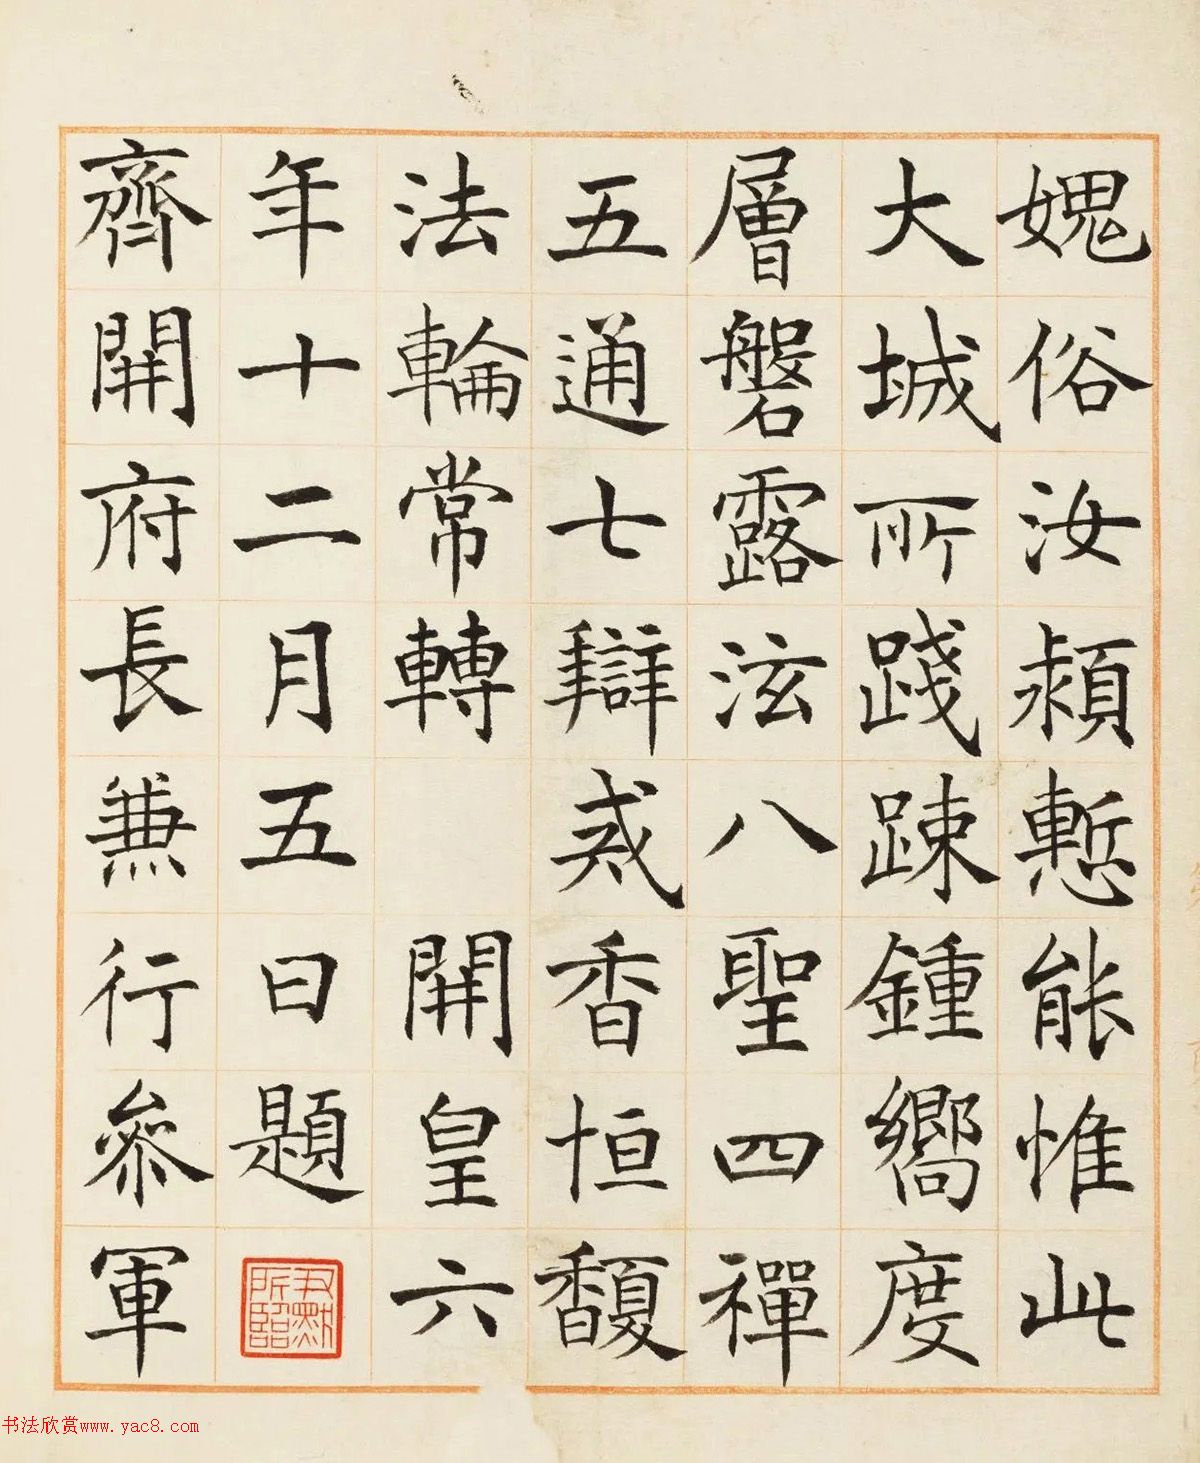 媿俗汝潁慙能惟此
大城所踐疎鍾嚮度
層磐露泫八聖四禪
五通七辯戒香恒馥
法輪常轉 開皇六
年十二月五日題
齊開府長兼行參軍
君默所臨
书法欣赏www.yac8.com